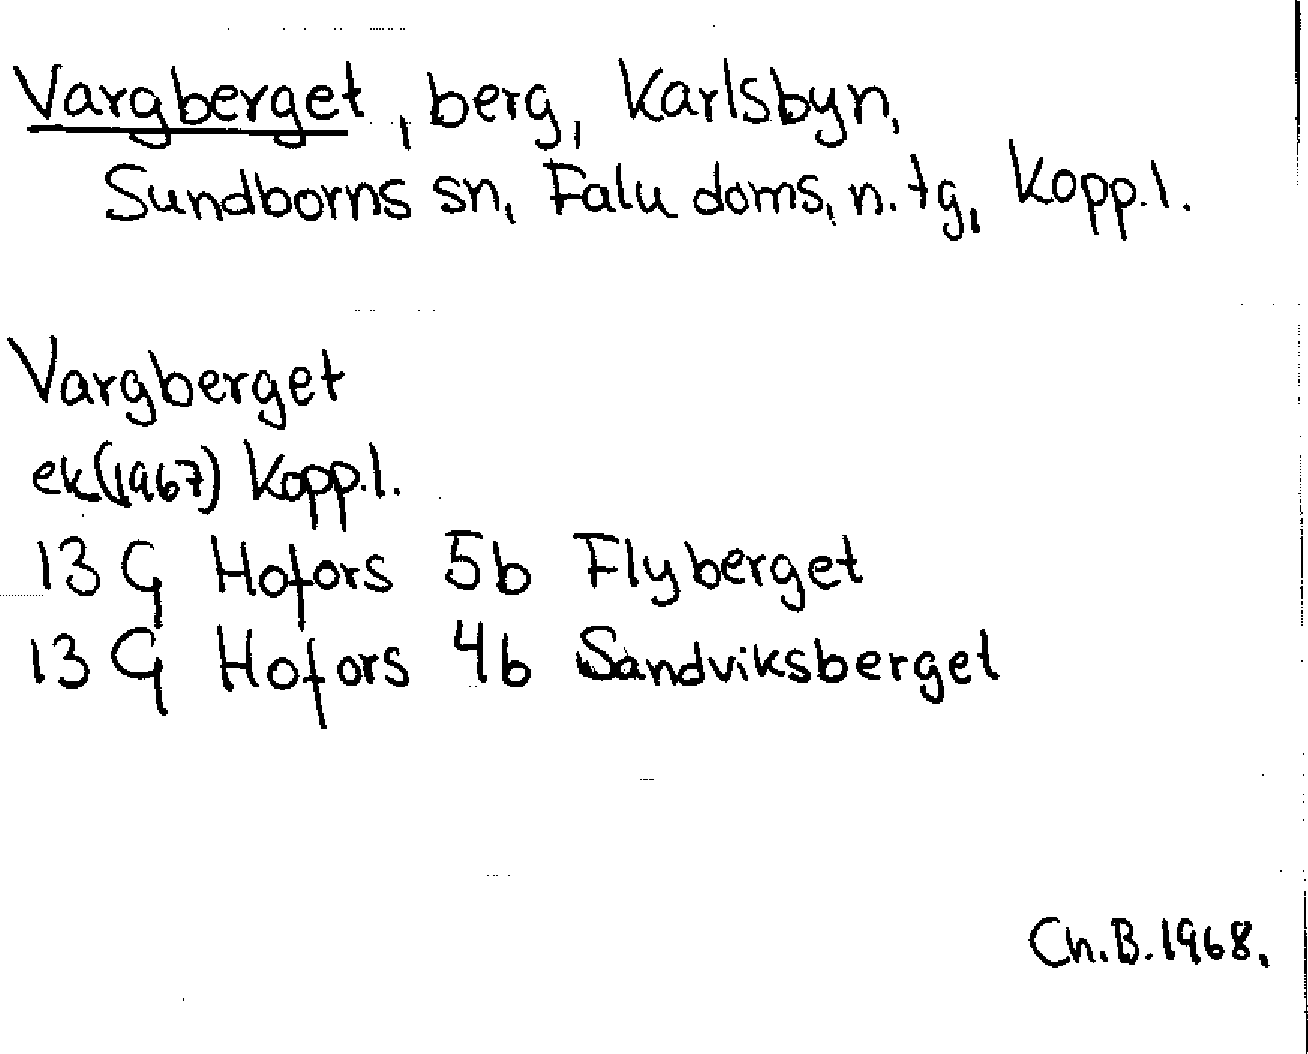 Vargberget, berg, Karlsbyn,
Sundborns sn, Falu doms, n. tg, Kopp. l.
Vargberget
ek (1967) Kopp. l.
13 G Hofors 5b Flyberget
13 G Hofors 4b Sandviksberget
Ch. B. 1968.